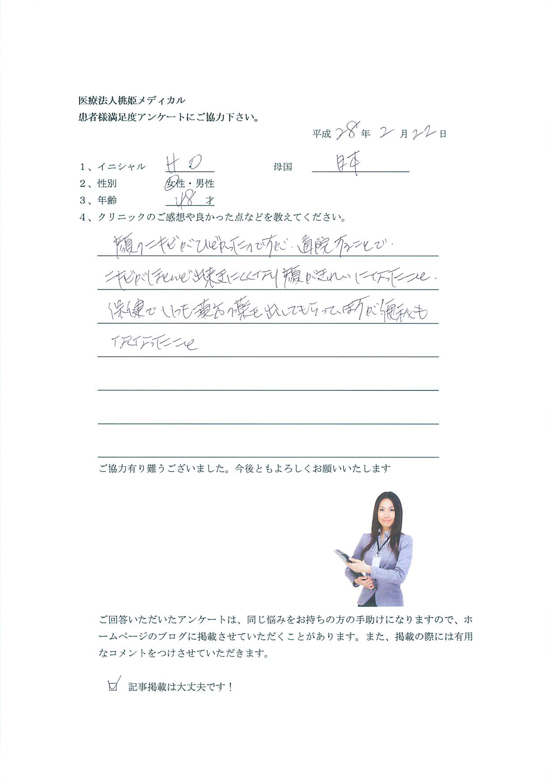 医療法人桃姫メディカル
患者様満足度アンケートにご協力下さい。
平成 28 年 2 月 22 日
1、イニシャル H.O 母国 日本
2、性別 女性・男性
3、年齢 48 才
4、クリニックのご感想や良かった点などを教えてください。
顔のニキビがひどかったのですが、通院することで、
ニキビがほとんど出来にくくなり顔がきれいになったこと。
保健でいつも漢方の薬を出してもらっていますが便秘も
なくなったこと
ご協力有り難うございました。今後ともよろしくお願いいたします
ご回答いただいたアンケートは、同じ悩みをお持ちの方の手助けになりますので、ホ
ームページのブログに掲載させていただくことがあります。また、掲載の際には有用
なコメントをつけさせていただきます。
記事掲載は大丈夫です！